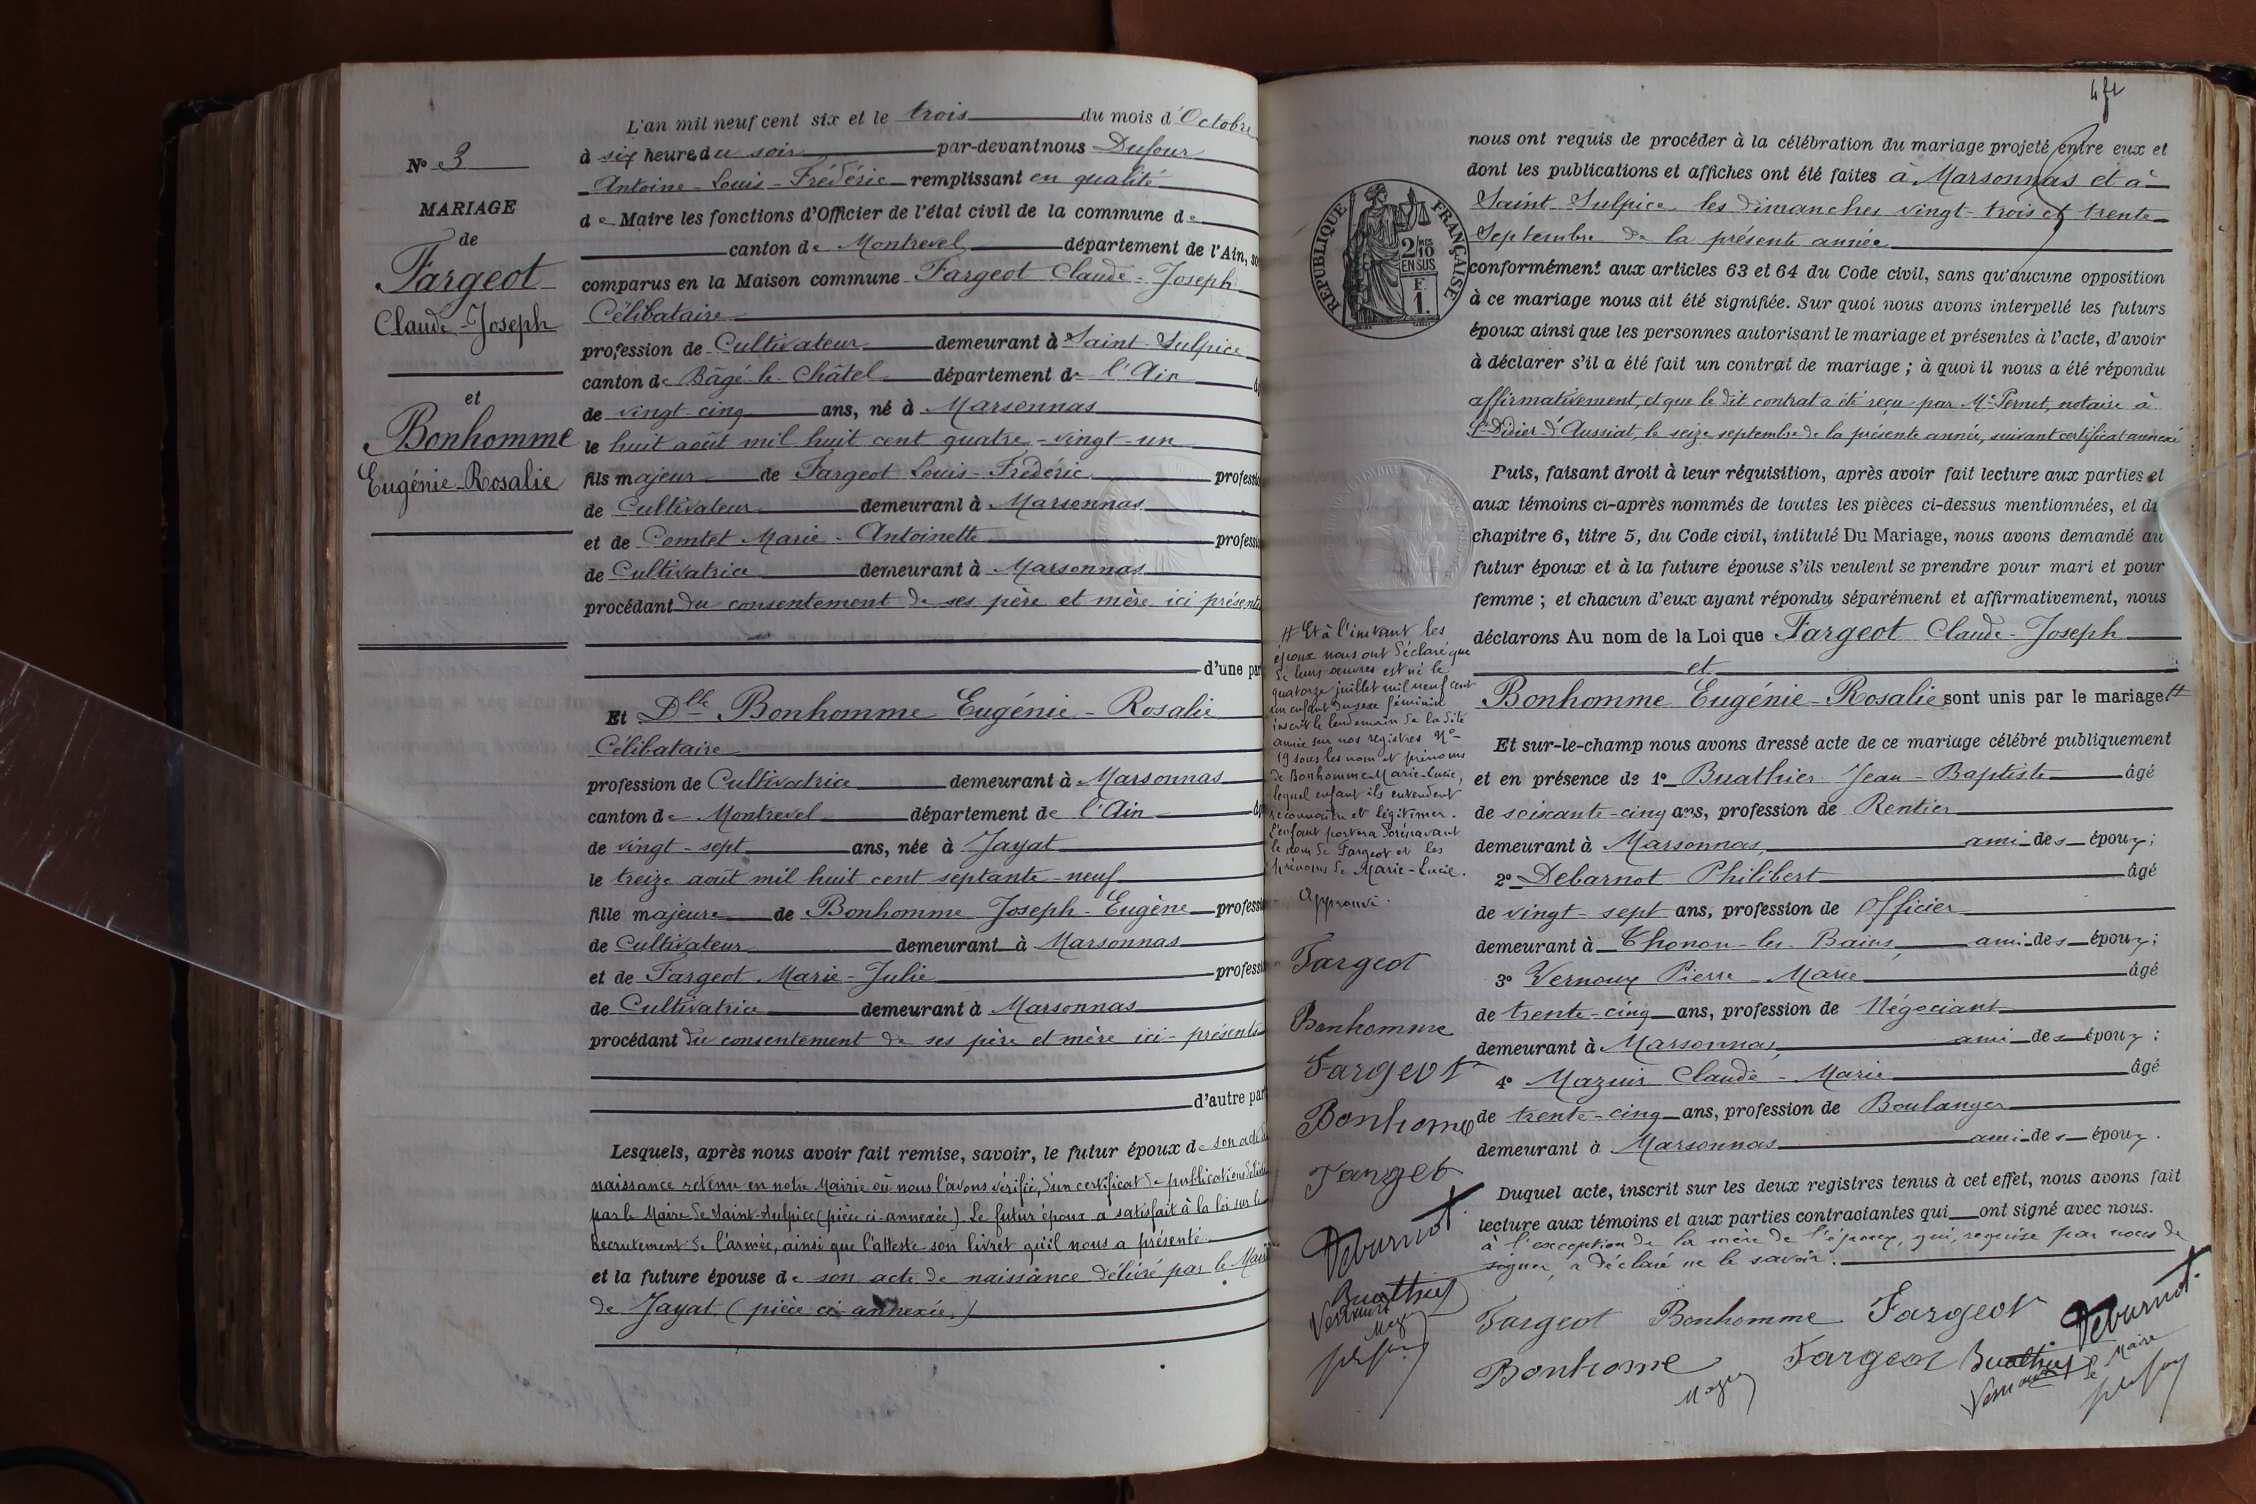 N° 3
MARIAGE
de
Fargeot
Claude-Joseph
et
Bonhomme
Eugénie-Rosalie
L'an mil neuf cent six et le trois du mois d'Octobre
à six heures du soir par-devant nous Dufour
Antoine-Louis-Frédéric remplissant en qualité
de Maire les fonctions d'Officier de l'état civil de la commune de
canton de Montrevel département de l'Ain, so
comparus en la Maison commune Fargeot Claude-Joseph
Célibataire
profession de Cultivateur demeurant à Saint-Sulpice
canton de Bâgé-le-Châtel département de l'Ain
de vingt-cinq ans, né à Marsonnas
le huit août mil huit cent quatre-vingt-un
fils majeur de Fargeot Louis-Frédéric professio
de Cultivateur demeurant à Marsonnas
et de Comtet Marie-Antoinette professi
de Cultivatrice demeurant à Marsonnas
procédant du consentement de ses père et mère ici présents
d'une par
Et Dlle Bonhomme Eugénie-Rosalie
Célibataire
profession de Cultivatrice demeurant à Marsonnas
canton de Montrevel département de l'Ain
de vingt-sept ans, née à Jayat
le treize août mil huit cent septante-neuf
fille majeure de Bonhomme Joseph-Eugène professi
de Cultivateur demeurant à Marsonnas
et de Fargeot Marie-Julie professi
de Cultivatrice demeurant à Marsonnas
procédant du consentement de ses père et mère ici-présents
d'autre par
Lesquels, après nous avoir fait remise, savoir, le futur époux de son acte de
naissance retenu en notre Mairie où nous l'avons vérifié, d'un certificat de publications délivré
par le Maire de Saint-Sulpice (pièce ci-annexée) Le futur époux a satisfait à la loi sur le
recrutement de l'armée, ainsi que l'atteste son livret qu'il nous a présenté.
et la future épouse de son acte de naissance délivré par le Maire
de Jayat (pièce ci-annexée)
REPUBLIQUE FRANÇAISE
2/10
EN SUS
F.
1.
nous ont requis de procéder à la célébration du mariage projeté entre eux et
dont les publications et affiches ont été faites à Marsonnas et à
Saint-Sulpice les dimanches vingt-trois et trente
Septembre de la présente année
conformément aux articles 63 et 64 du Code civil, sans qu'aucune opposition
à ce mariage nous ait été signifiée. Sur quoi nous avons interpellé les futurs
époux ainsi que les personnes autorisant le mariage et présentes à l'acte, d'avoir
à déclarer s'il a été fait un contrat de mariage ; à quoi il nous a été répondu
affirmativement, et que le dit contrat a été reçu par Me Pernet, notaire à
St Didier-d'Aussiat, le seize septembre de la présente année, suivant certificat annexé
Puis, faisant droit à leur réquisition, après avoir fait lecture aux parties et
aux témoins ci-après nommés de toutes les pièces ci-dessus mentionnées, et du
chapitre 6, titre 5, du Code civil, intitulé Du Mariage, nous avons demandé au
futur époux et à la future épouse s'ils veulent se prendre pour mari et pour
femme ; et chacun d'eux ayant répondu séparément et affirmativement, nous
déclarons Au nom de la Loi que Fargeot Claude-Joseph
et
Bonhomme Eugénie-Rosalie sont unis par le mariage #
Et sur-le-champ nous avons dressé acte de ce mariage célébré publiquement
et en présence de 1° Buathier Jean-Baptiste âgé
de soixante-cinq ans, profession de Rentier
demeurant à Marsonnas, ami des époux ;
2° Debarnot Philibert âgé
de vingt-sept ans, profession de Officier
demeurant à Thonon-les-Bains, ami des époux ;
3° Vernoux Pierre-Marie âgé
de trente-cinq ans, profession de Négociant
demeurant à Marsonnas, ami des époux ;
4° Mazuir Claude-Marie âgé
de trente-cinq ans, profession de Boulanger
demeurant à Marsonnas ami des époux.
Duquel acte, inscrit sur les deux registres tenus à cet effet, nous avons fait
lecture aux témoins et aux parties contractantes qui ont signé avec nous.
à l'exception de la mère de l'époux, qui, requise par nous de
signer, a déclaré ne le savoir.
Fargeot Bonhomme Fargeot Debarnot
Bonhome Fargeot Buathier Le Maire
Vernoux
# Et à l'instant les
époux nous ont déclaré que
de leurs œuvres est né le
quatorze juillet mil neuf cent
un enfant du sexe féminin
inscrit le lendemain de la dite
année sur nos registres N°
19 sous les nom et prénoms
de Bonhomme Marie-Lucie,
lequel enfant ils entendent
reconnaître et légitimer.
L'enfant portera dorénavant
le nom de Fargeot et les
prénoms de Marie-Lucie.
Approuvé.
Fargeot
Bonhomme
Fargeot
Bonhome
Farget
Debarnot
Buathier
Vernoux